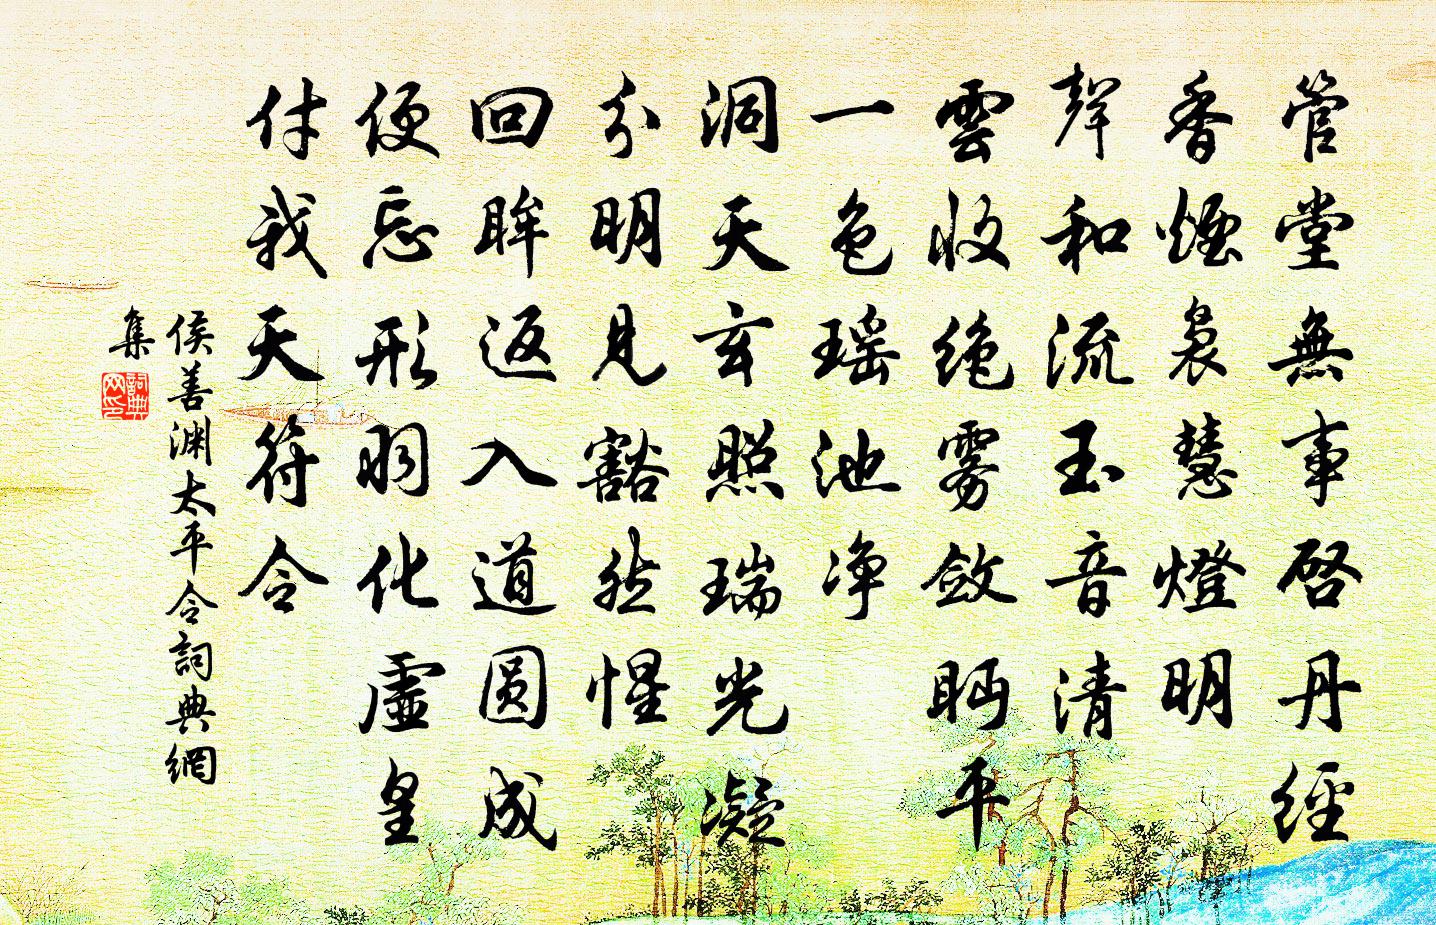 管堂無事啓丹經
香煙裊慧燈明
聲和流玉音清
雲收絶雾斂眄平
一色瑶池净
洞天玄照瑞光凝
分明見豁然惺
回眸返入道圆成
便忘形羽化虛皇
付我天符令
侯善渊太平令詞典網
集
詞典
网印